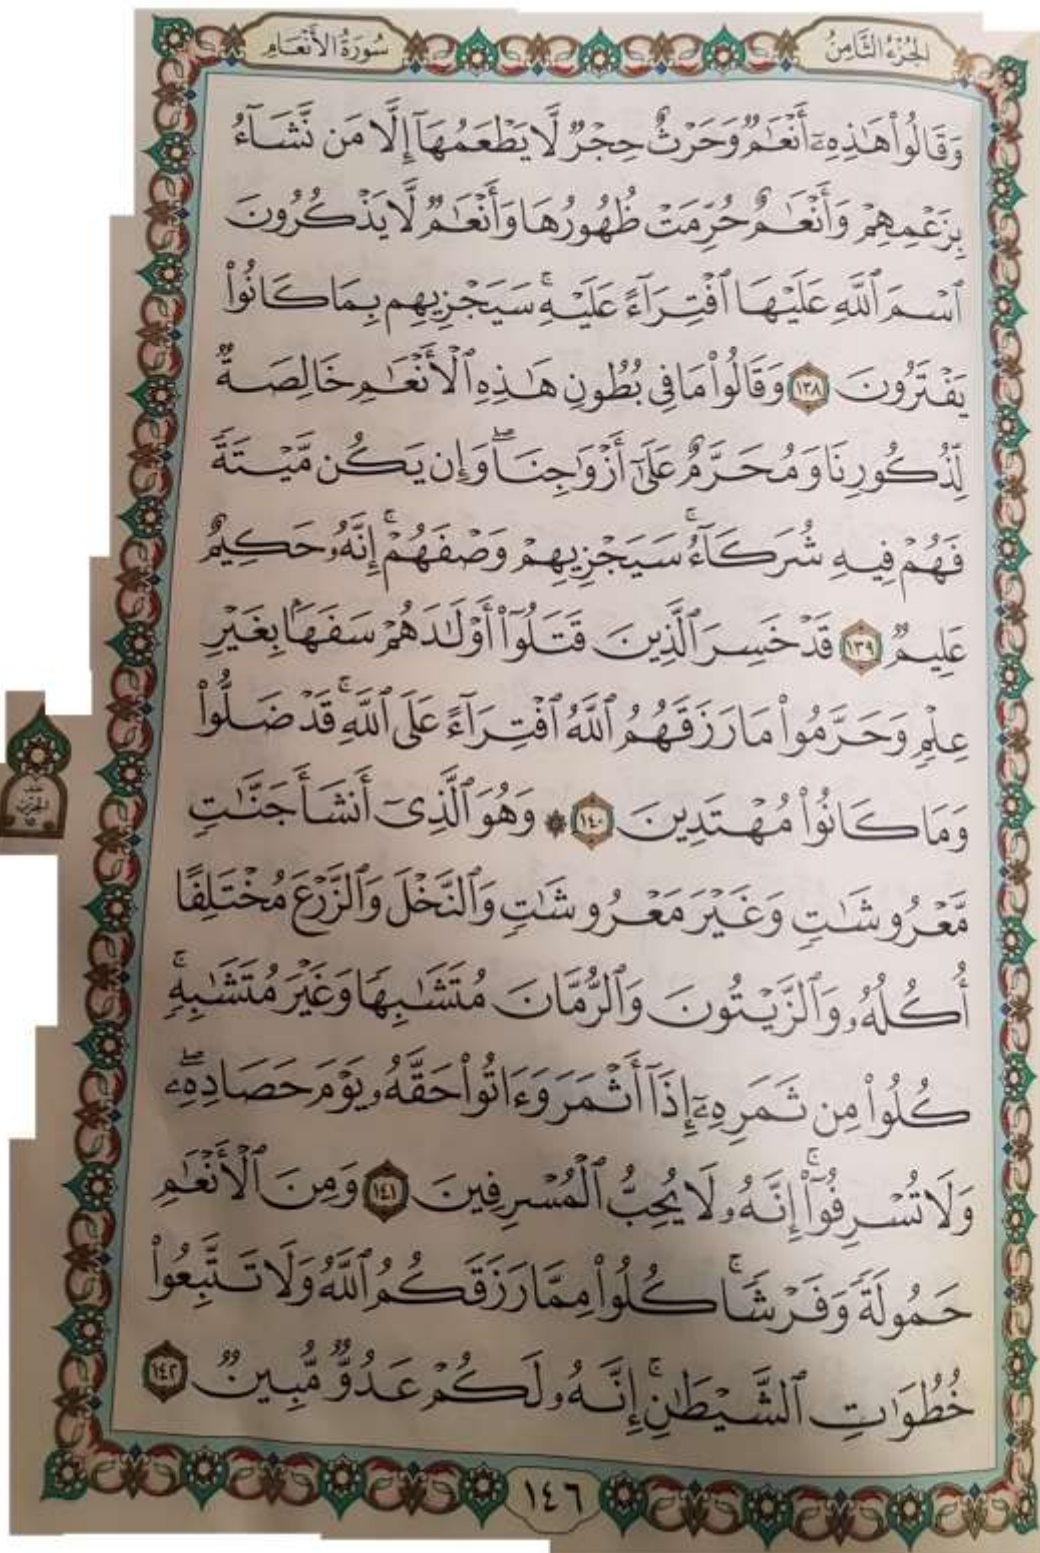 الجُزْءُ الثَّامِنُ
سُورَةُ الأَنْعَامِ
وَقَالُواْ هَٰذِهِۦٓ أَنْعَٰمٌ وَحَرْثٌ حِجْرٌ لَّا يَطْعَمُهَآ إِلَّا مَن نَّشَآءُ
بِزَعْمِهِمْ وَأَنْعَٰمٌ حُرِّمَتْ ظُهُورُهَا وَأَنْعَٰمٌ لَّا يَذْكُرُونَ
ٱسْمَ ٱللَّهِ عَلَيْهَا ٱفْتِرَآءً عَلَيْهِۚ سَيَجْزِيهِم بِمَا كَانُواْ
يَفْتَرُونَ ١٣٨ وَقَالُواْ مَا فِى بُطُونِ هَٰذِهِ ٱلْأَنْعَٰمِ خَالِصَةٌ
لِّذُكُورِنَا وَمُحَرَّمٌ عَلَىٰٓ أَزْوَٰجِنَاۖ وَإِن يَكُن مَّيْتَةً
فَهُمْ فِيهِ شُرَكَآءُۚ سَيَجْزِيهِمْ وَصْفَهُمْۚ إِنَّهُۥ حَكِيمٌ
عَلِيمٌ ١٣٩ قَدْ خَسِرَ ٱلَّذِينَ قَتَلُوٓاْ أَوْلَٰدَهُمْ سَفَهَۢا بِغَيْرِ
عِلْمٍ وَحَرَّمُواْ مَا رَزَقَهُمُ ٱللَّهُ ٱفْتِرَآءً عَلَى ٱللَّهِۚ قَدْ ضَلُّواْ
وَمَا كَانُواْ مُهْتَدِينَ ١٤٠ ۞ وَهُوَ ٱلَّذِىٓ أَنشَأَ جَنَّٰتٍ
مَّعْرُوشَٰتٍ وَغَيْرَ مَعْرُوشَٰتٍ وَٱلنَّخْلَ وَٱلزَّرْعَ مُخْتَلِفًا
أُكُلُهُۥ وَٱلزَّيْتُونَ وَٱلرُّمَّانَ مُتَشَٰبِهًا وَغَيْرَ مُتَشَٰبِهٍۚ
كُلُواْ مِن ثَمَرِهِۦٓ إِذَآ أَثْمَرَ وَءَاتُواْ حَقَّهُۥ يَوْمَ حَصَادِهِۦۖ
وَلَا تُسْرِفُوٓاْۚ إِنَّهُۥ لَا يُحِبُّ ٱلْمُسْرِفِينَ ١٤١ وَمِنَ ٱلْأَنْعَٰمِ
حَمُولَةً وَفَرْشًاۚ كُلُواْ مِمَّا رَزَقَكُمُ ٱللَّهُ وَلَا تَتَّبِعُواْ
خُطُوَٰتِ ٱلشَّيْطَٰنِۚ إِنَّهُۥ لَكُمْ عَدُوٌّ مُّبِينٌ ١٤٢
١٤٦